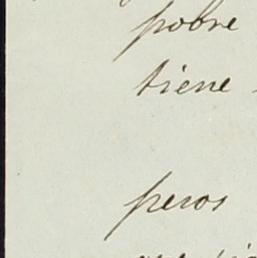 pobre
tiene
peros